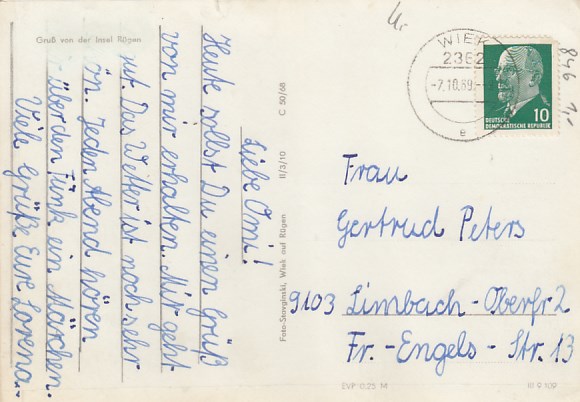 Gruß von der Insel Rügen
Liebe Omi!
Heute sollst Du einen Gruß
von mir erhalten. Mir geht
gut. Das Wetter ist noch sehr
ön. Jeden Abend hören
über den Funk ein Märchen.
Viele Grüße Eure Lorena.-
Foto-Stavginski, Wiek auf Rügen
II/3/10
C 50/68
WIEK
2362
-7.10.69.-
e
DEUTSCHE
DEMOKRATISCHE REPUBLIK
10
846
Frau
Gertrud Peters
9103 Limbach-Oberfr 2
Fr.-Engels-Str. 13
EVP 0,25 M
III 9 109